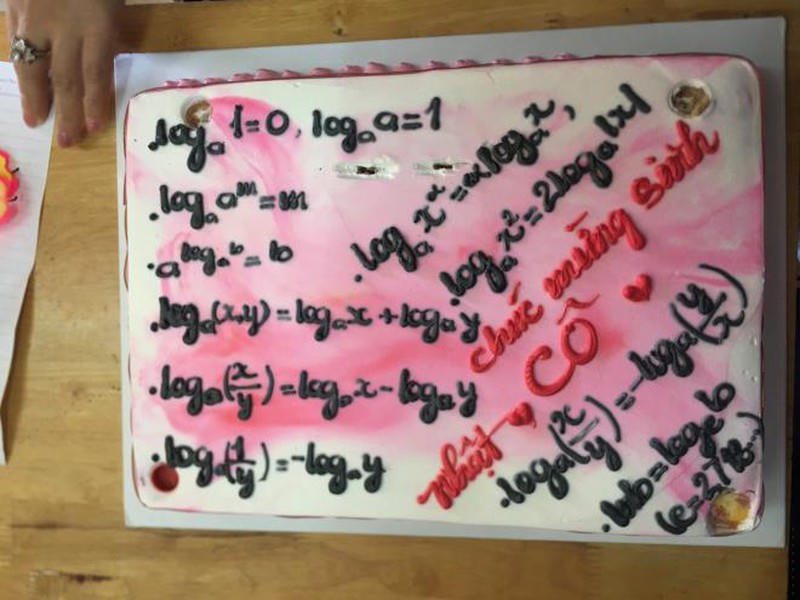 .logₐ 1=0, logₐ a=1
.logₐ aᵐ=m
.a^logₐ b = b
.logₐ(x,y) = logₐ x + logₐ y
.logₐ(x/y) = logₐ x - logₐ y
.logₐ(1/y) = -logₐ y
.logₐ x^α = α logₐ x,
logₐ x² = 2logₐ |x|
chúc mừng sinh
nhật CÔ
.logₐ(x/y) = -logₐ(y/x)
.lnb = logₑ b
(e=2,718...)